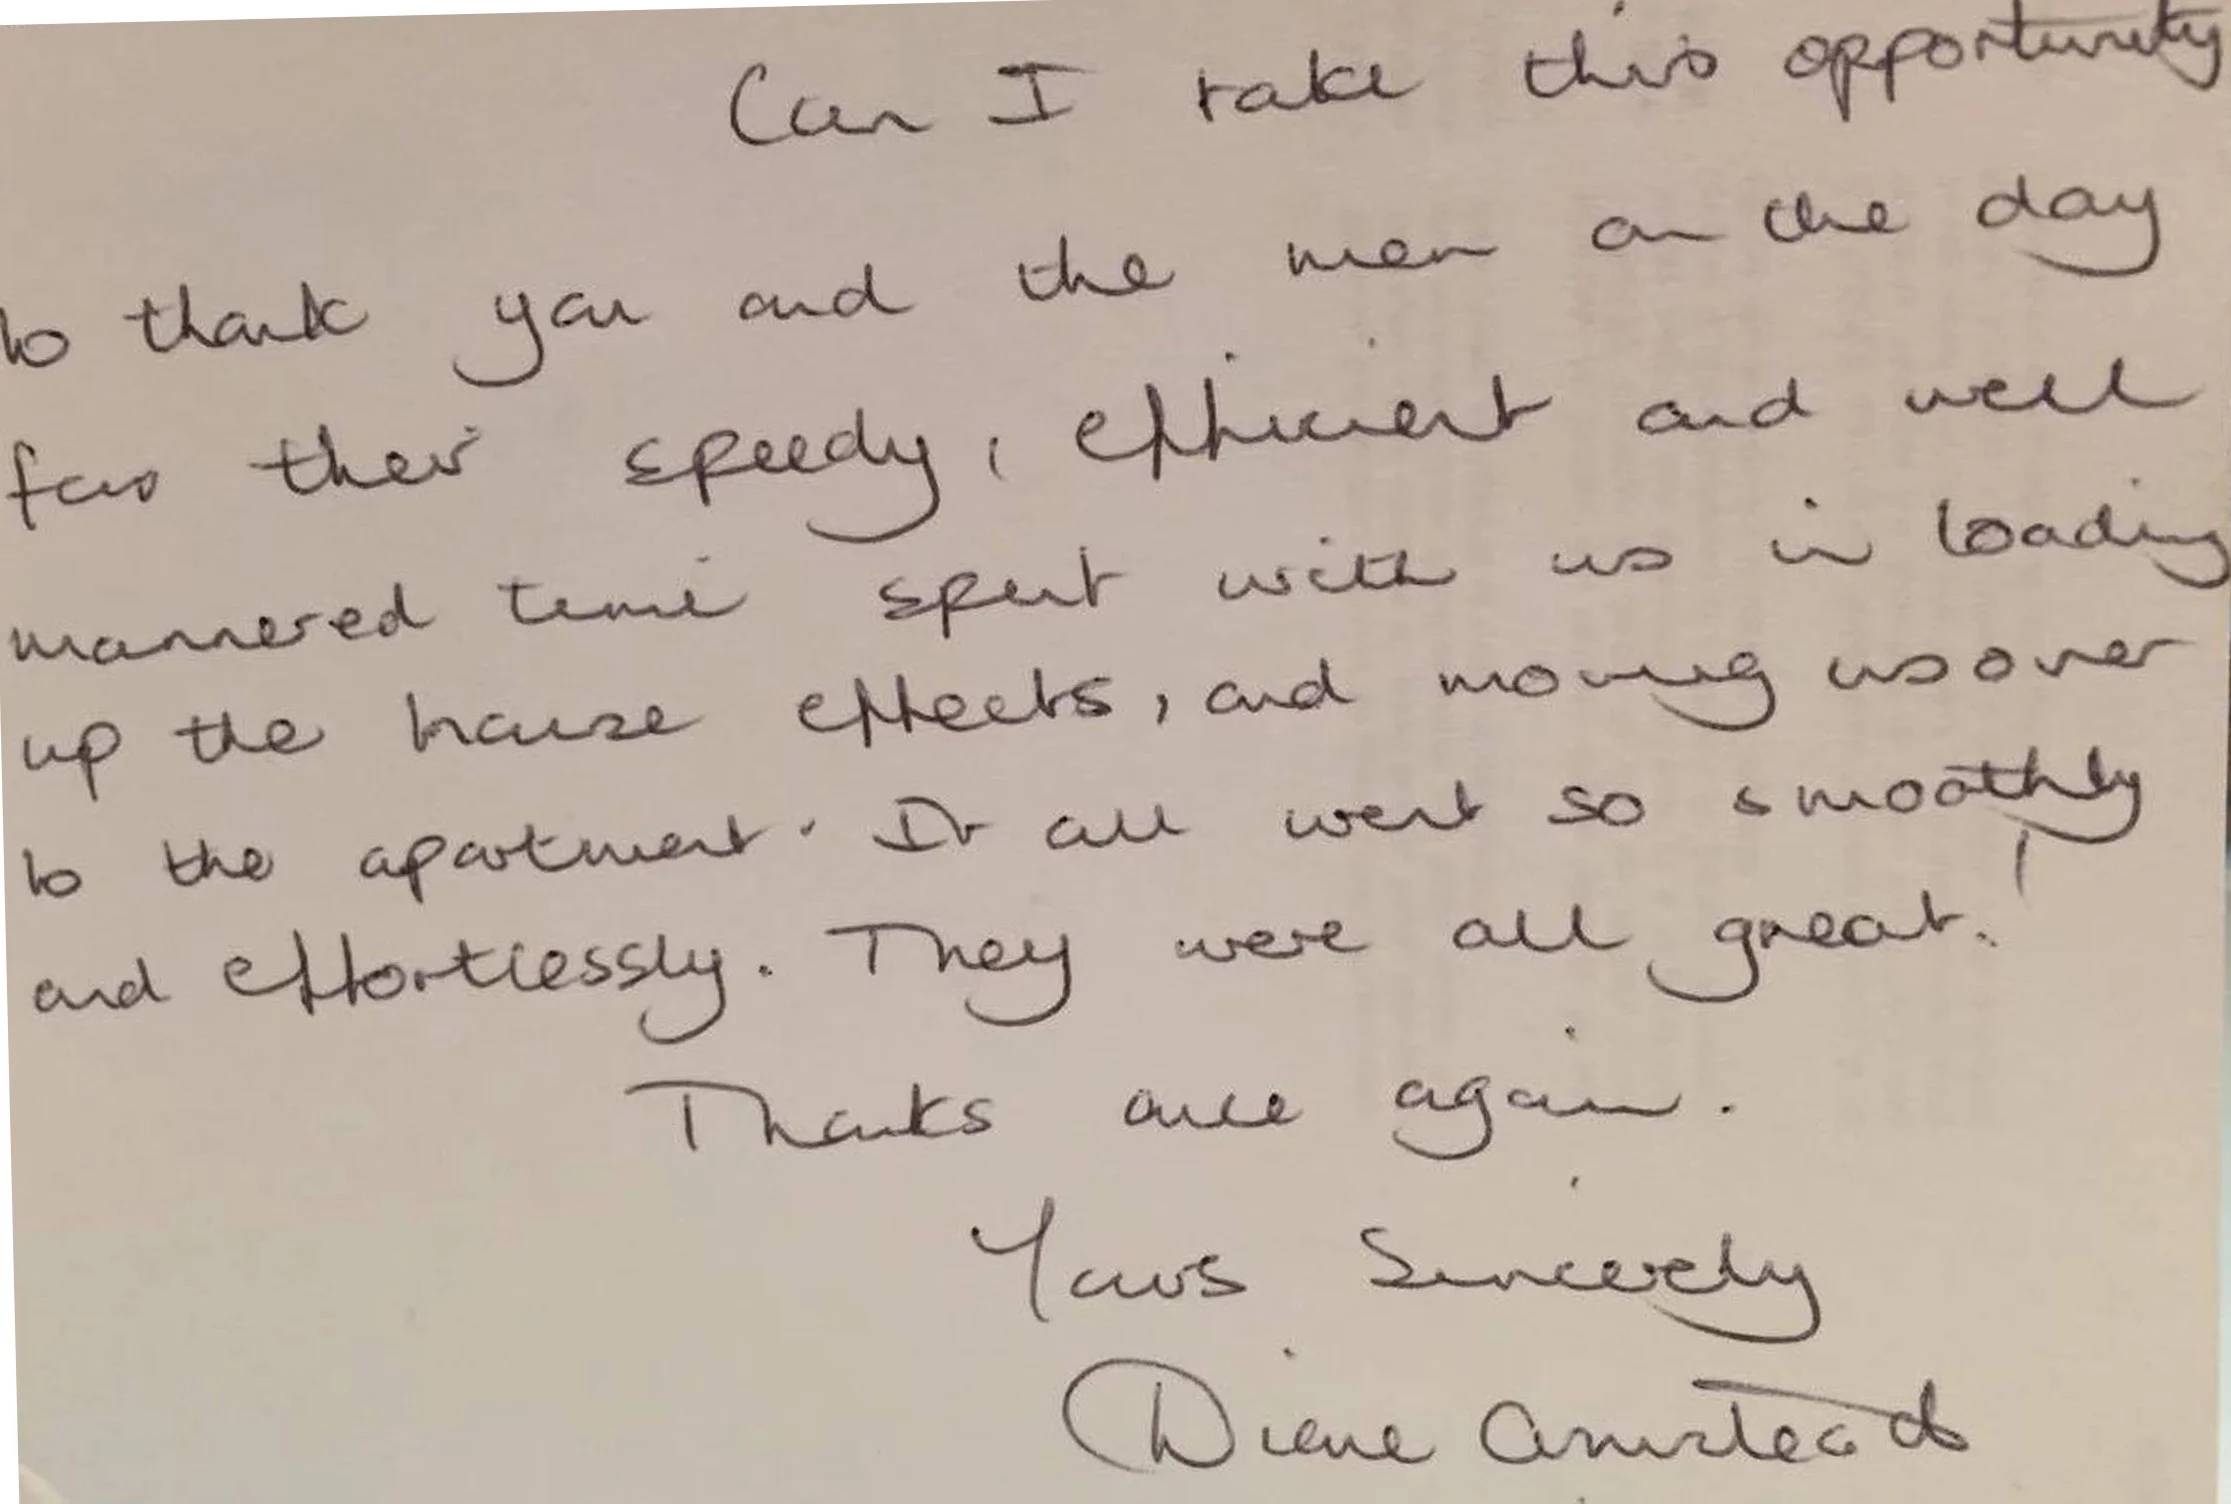 Can I take this opportunity
to thank you and the men on the day
for their speedy, efficient and well
mannered time spent with us in loading
up the house effects, and moving us over
to the apartment. It all went so smoothly
and effortlessly. They were all great!
Thanks once again.
Yours Sincerely
Diane Armistead